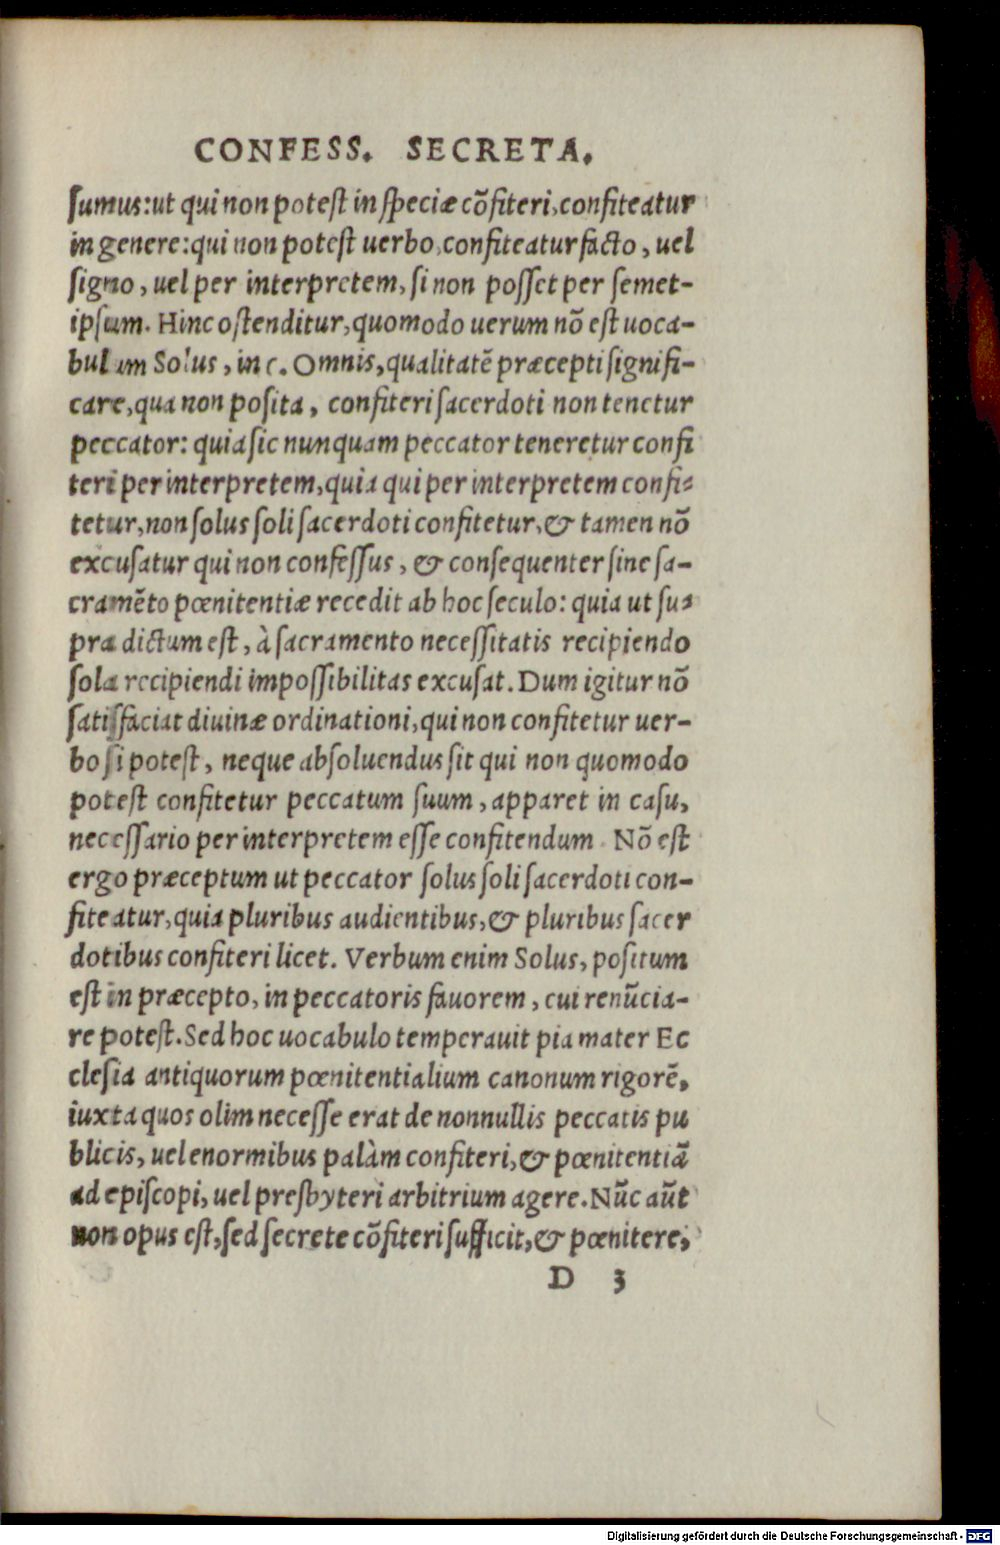 CONFESS. SECRETA.
sumus:ut qui non potest in speciæ cõfiteri,confiteatur
in genere:qui non potest uerbo,confiteatur facto, uel
signo, uel per interpretem, si non posset per semet-
ipsum. Hinc ostenditur,quomodo uerum nõ est uoca-
bulum Solus, in c. Omnis,qualitatẽ præcepti signifi-
care,qua non posita, confiteri sacerdoti non tenetur
peccator: quia sic nunquam peccator teneretur confi
teri per interpretem,quia qui per interpretem confi-
tetur,non solus soli sacerdoti confitetur,& tamen nõ
excusatur qui non confessus, & consequenter sine sa-
cramẽto pœnitentiæ recedit ab hoc seculo: quia ut su-
pra dictum est, à sacramento necessitatis recipiendo
sola recipiendi impossibilitas excusat. Dum igitur nõ
satisfaciat diuinæ ordinationi,qui non confitetur uer-
bo si potest, neque absoluendus sit qui non quomodo
potest confitetur peccatum suum, apparet in casu,
necessario per interpretem esse confitendum. Nõ est
ergo præceptum ut peccator solus soli sacerdoti con-
fiteatur,quia pluribus audientibus,& pluribus sacer
dotibus confiteri licet. Verbum enim Solus, positum
est in præcepto, in peccatoris fauorem, cui renũcia-
re potest. Sed hoc uocabulo temperauit pia mater Ec
clesia antiquorum pœnitentialium canonum rigorẽ,
iuxta quos olim necesse erat de nonnullis peccatis pu
blicis, uel enormibus palàm confiteri,& pœnitentiã
ad episcopi, uel presbyteri arbitrium agere. Nũc aũt
non opus est,sed secrete cõfiteri sufficit,& pœnitere,
D 3
Digitalisierung gefördert durch die Deutsche Forschungsgemeinschaft - DFG